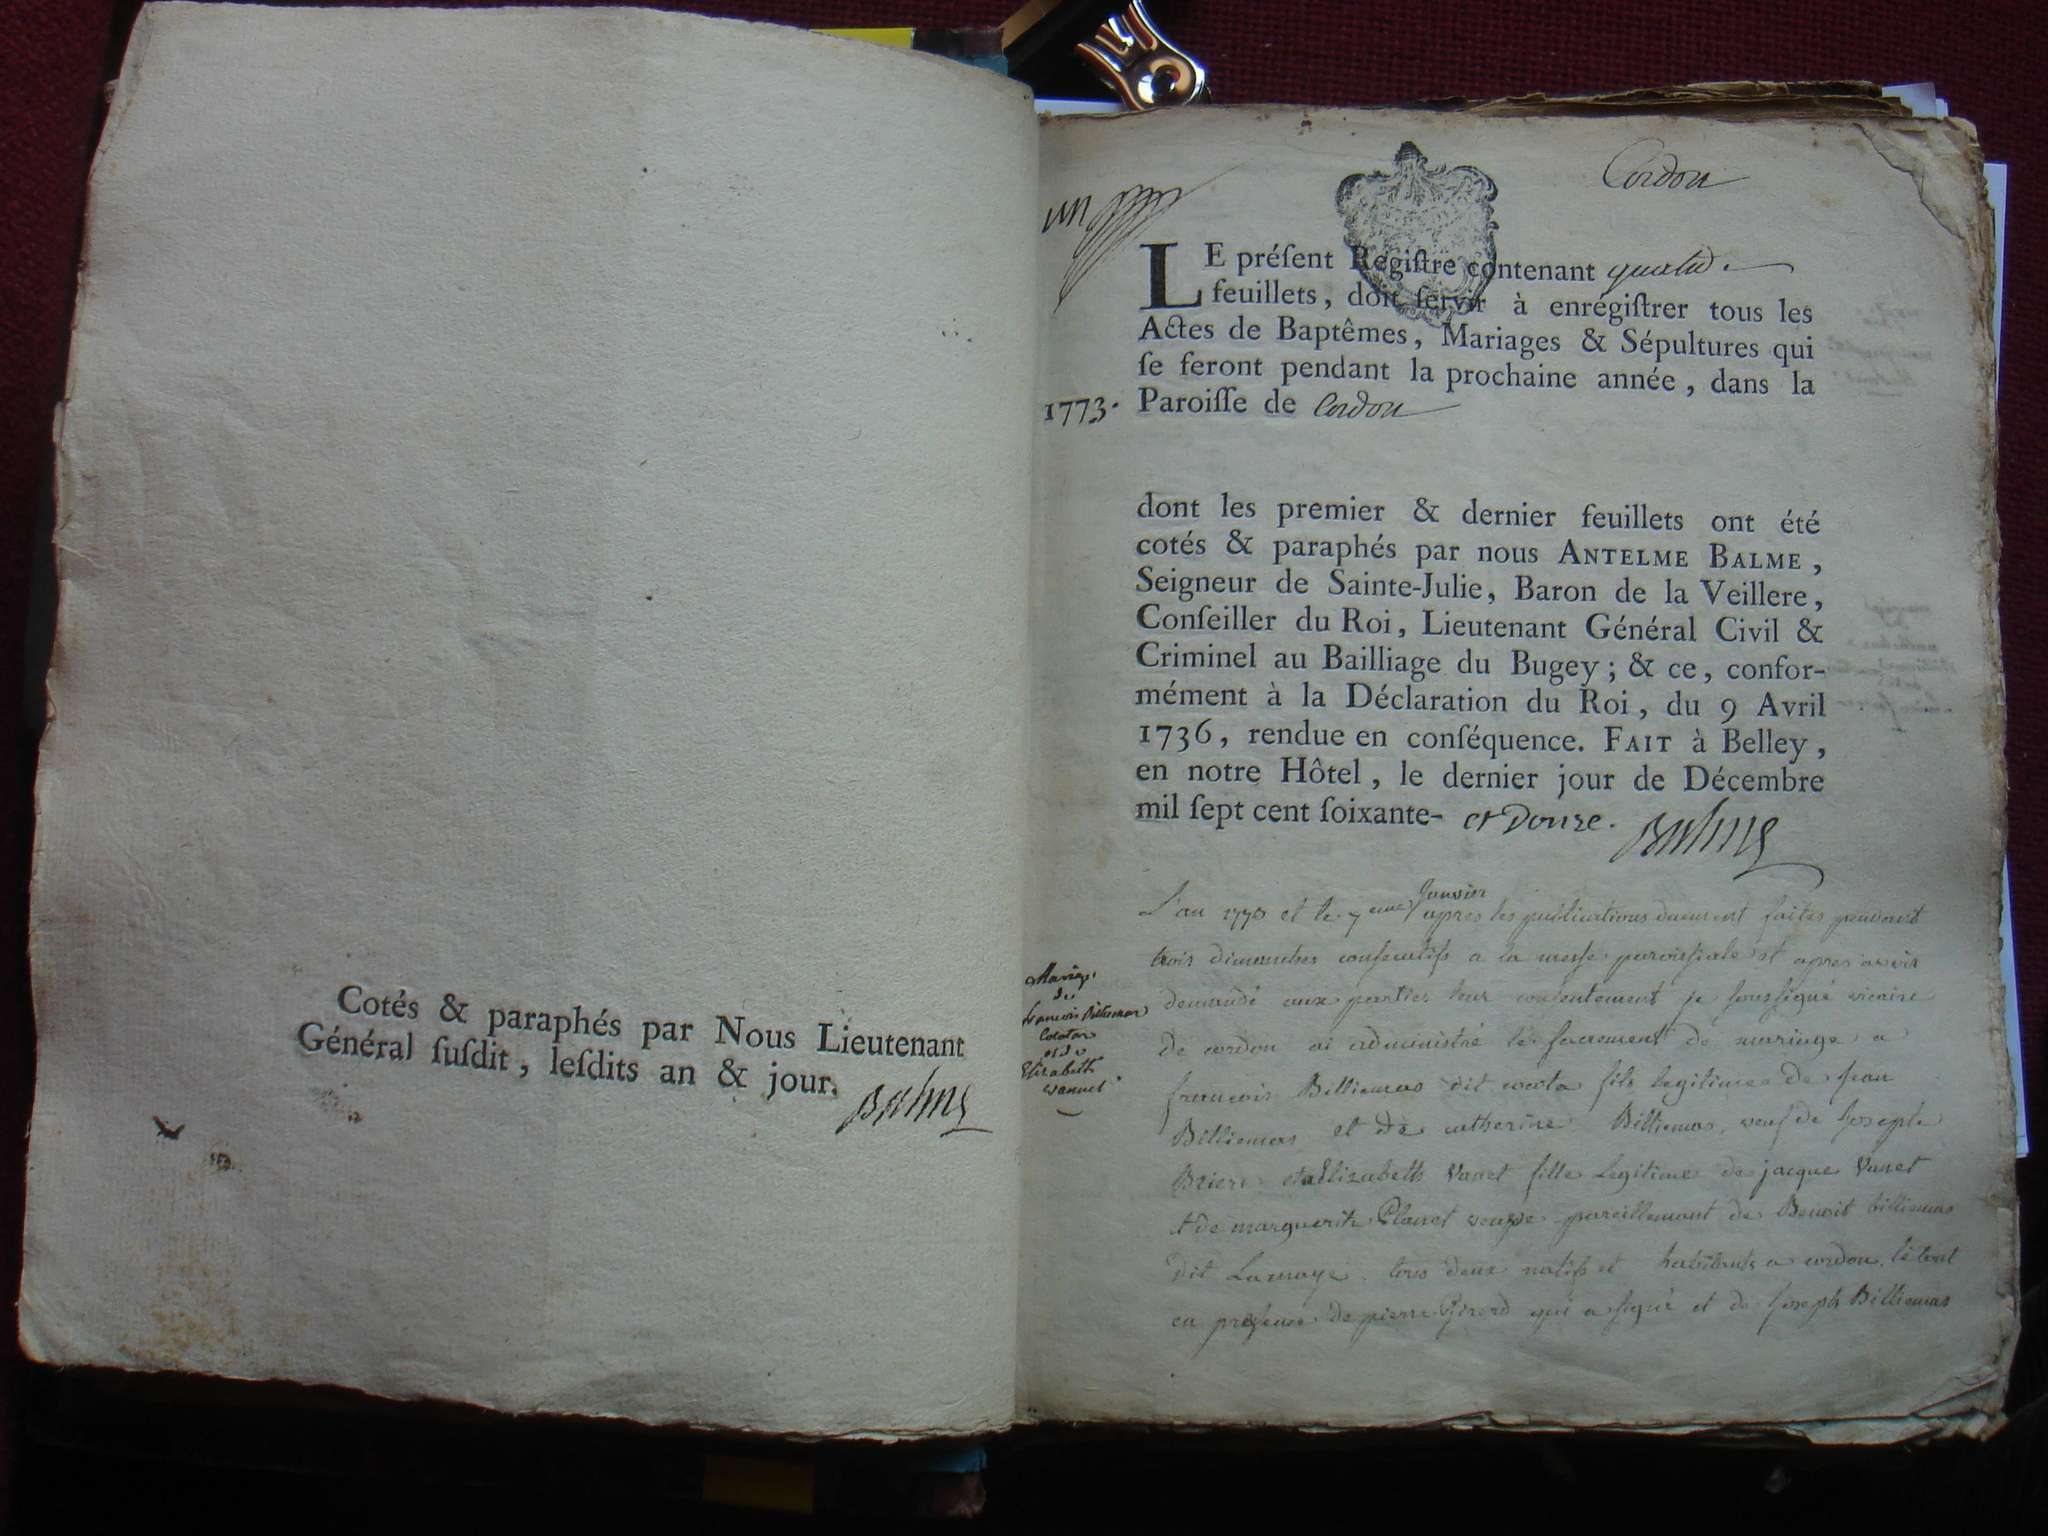 Cotés & paraphés par Nous Lieutenant
Général ſuſdit, leſdits an & jour.
Balme
un
Cordon
LE préſent Regiſtre contenant quatre
feuillets, doit ſervir à enrégiſtrer tous les
Actes de Baptêmes, Mariages & Sépultures qui
ſe feront pendant la prochaine année, dans la
1773. Paroiſſe de Cordon
dont les premier & dernier feuillets ont été
cotés & paraphés par nous ANTELME BALME,
Seigneur de Sainte-Julie, Baron de la Veillere,
Conſeiller du Roi, Lieutenant Général Civil &
Criminel au Bailliage du Bugey; & ce, confor-
mément à la Déclaration du Roi, du 9 Avril
1736, rendue en conſéquence. FAIT à Belley,
en notre Hôtel, le dernier jour de Décembre
mil ſept cent ſoixante- et Douze.
Balme
Mariage
de
francois Billiemas
et de
Elizabeth
vannet
L'an 1773 et le 7eme Janvier apres les publications duement faites pendant
trois dimanches conſecutifs a la meſſe paroiſſiale et apres avoir
demandé aux parties leur conſentement je ſousſigné vicaire
de cordon ai administré le ſacrement de mariage a
francois Billiemas dit cocta fils legitime de jean
Billiemas et de catherine Billiemas, veuf de Joseph
et a Elizabeth Vanet fille legitime de jacque Vanet
et de marguerite Planet veuve pareillement de Benoit billiemas
dit Lamaye tous deux natifs et habitants a cordon, le tout
en preſence de pierre Girord qui a ſigné et de Joseph Billiemas